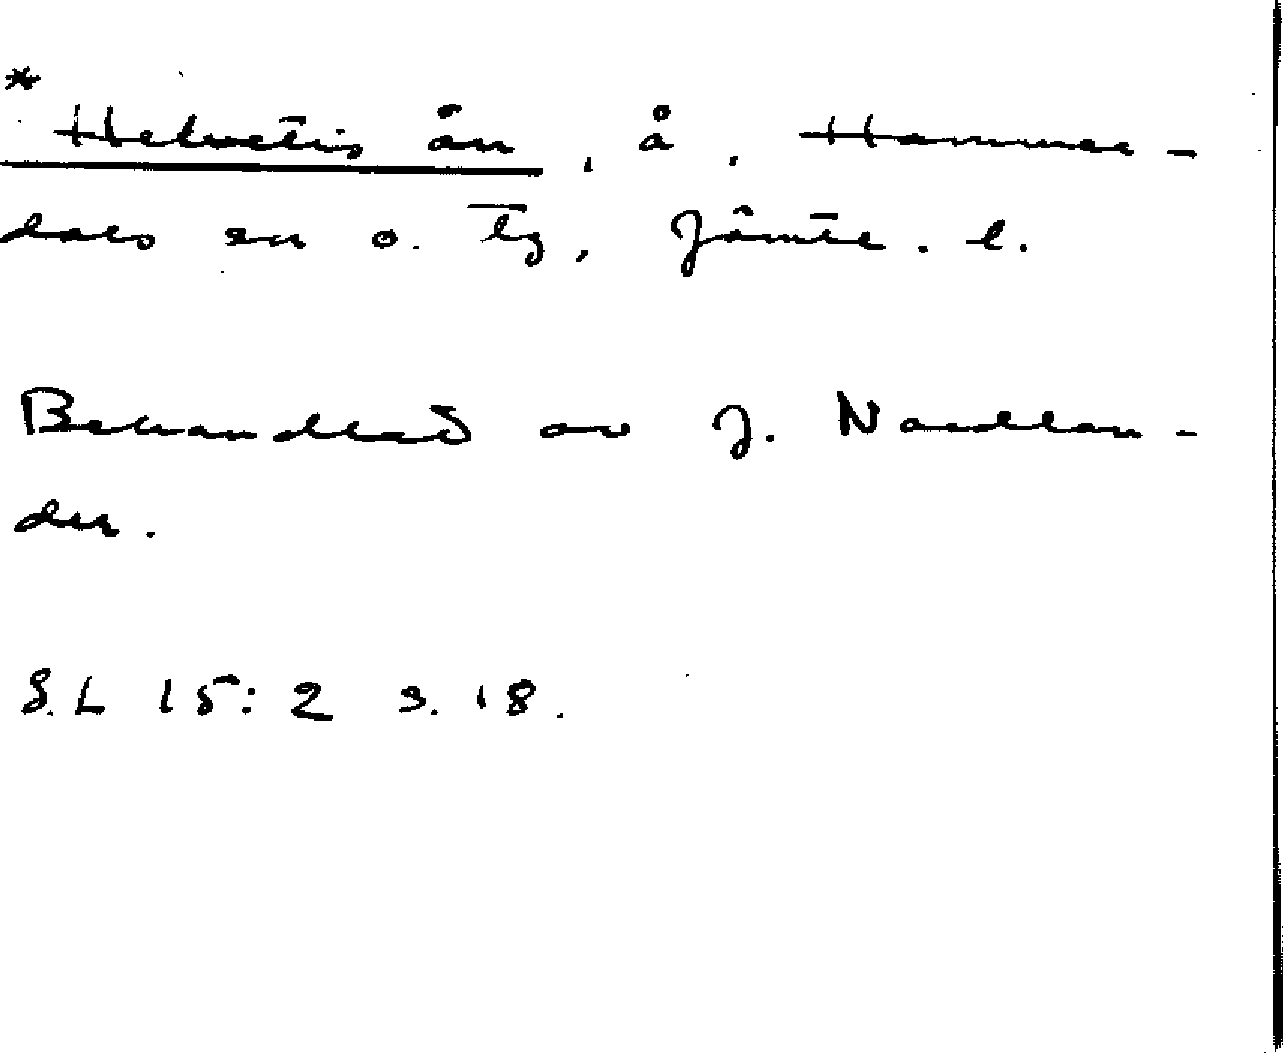 * Helvetis ån, å, Hammer-
dals sn o. tg, Jämtl. l.
Behandlad av J. Nordlan-
der.
S.L 15:2 s. 18.